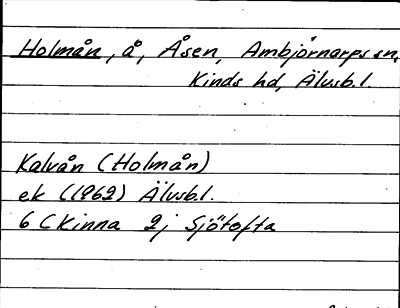 Holmån, å, Åsen, Ambjörnarps sn,
Kinds hd, Älvsb.l.
Kalvån (Holmån)
ek (1962) Älvsb.l.
6C Kinna 2j Sjötofta